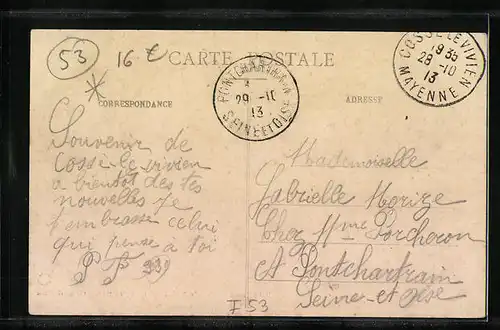 53
16 €
CARTE POSTALE
COSSÉ LE VIVIEN
1935
28 -10
13
MAYENNE
PONTCHARTRAIN
29 -10
13
SEINE ET OISE
CORRESPONDANCE
ADRESSE
Souvenir de
Cossé le vivien
a bientot des tes
nouvelles je
t'embrasse celui
qui pense à toi
Mademoiselle
Gabrielle Morize
Chez Mme Porcheron
A Pontchartrain
Seine-et-Oise
I 53